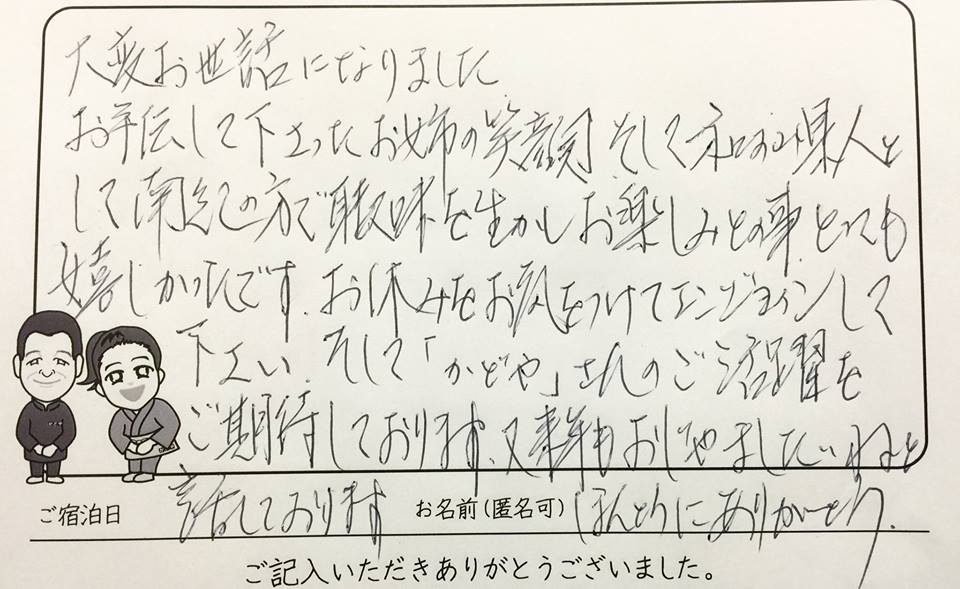 大変お世話になりました
お手伝して下さったお姉の笑顔 そして 県人と
して南紀の方で職味を生かしお楽しみとの事 とっても
嬉しかったです、お休みをお気をつけてエンジョインして
下さい、そして「かどや」さんのご活躍を
ご期待しております、又来年もおじゃましたいねと
話しております ほんとうにありがとう.
ご宿泊日 お名前(匿名可)
ご記入いただきありがとうございました。